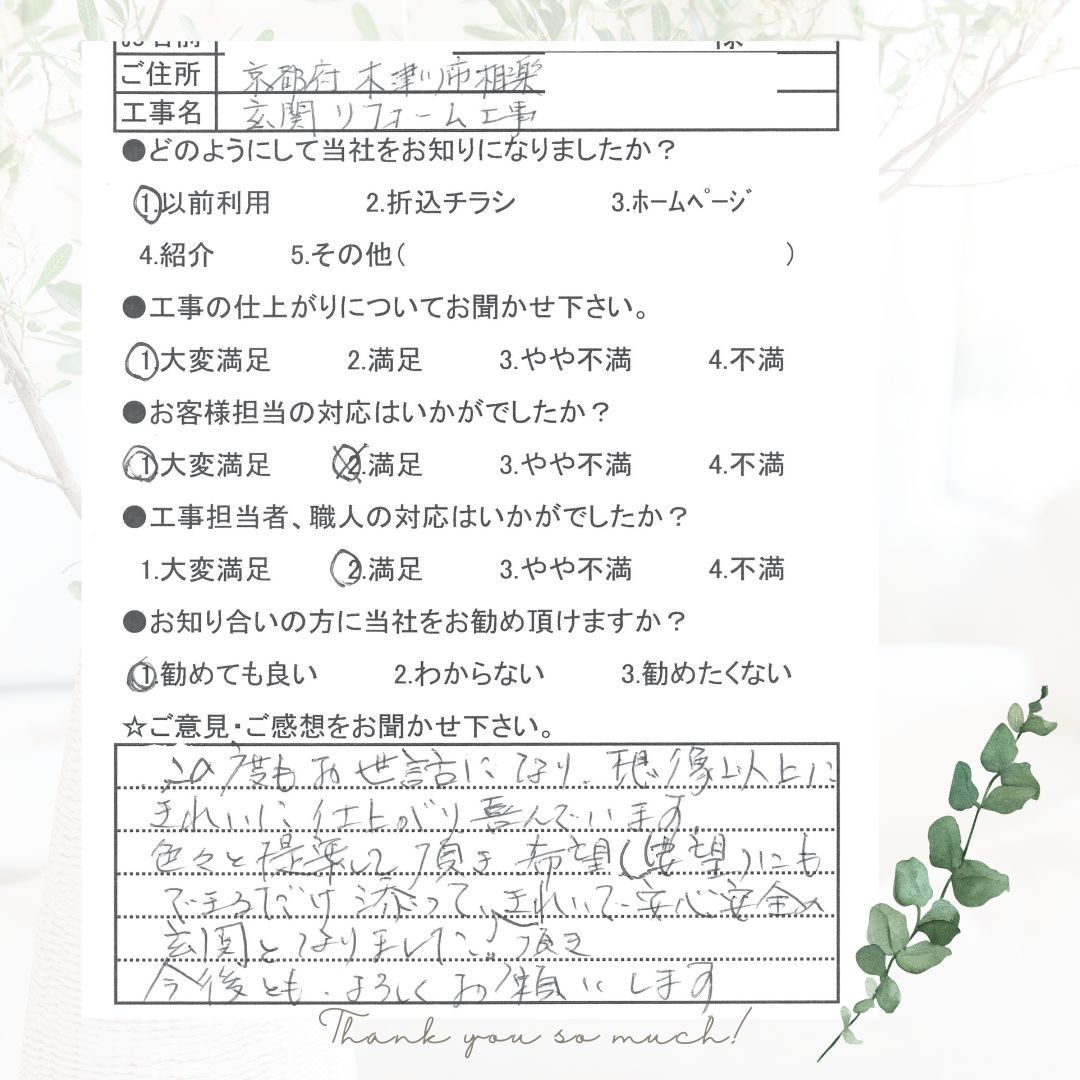 お名前 様
ご住所 京都府 木津川市相楽
工事名 玄関リフォーム工事
●どのようにして当社をお知りになりましたか？
1.以前利用 2.折込チラシ 3.ﾎｰﾑﾍﾟｰｼﾞ
4.紹介 5.その他( )
●工事の仕上がりについてお聞かせ下さい。
1.大変満足 2.満足 3.やや不満 4.不満
●お客様担当の対応はいかがでしたか？
1.大変満足 2.満足 3.やや不満 4.不満
●工事担当者、職人の対応はいかがでしたか？
1.大変満足 2.満足 3.やや不満 4.不満
●お知り合いの方に当社をお勧め頂けますか？
1.勧めても良い 2.わからない 3.勧めたくない
☆ご意見・ご感想をお聞かせ下さい。
この度もお世話になり、想像以上に
きれいに仕上がり喜んでいます。
色々と提案して頂き 希望(要望)にも
できるだけ添って頂き、きれいで安心安全の
玄関となりました。
今後とも、よろしくお願いします
Thank you so much!